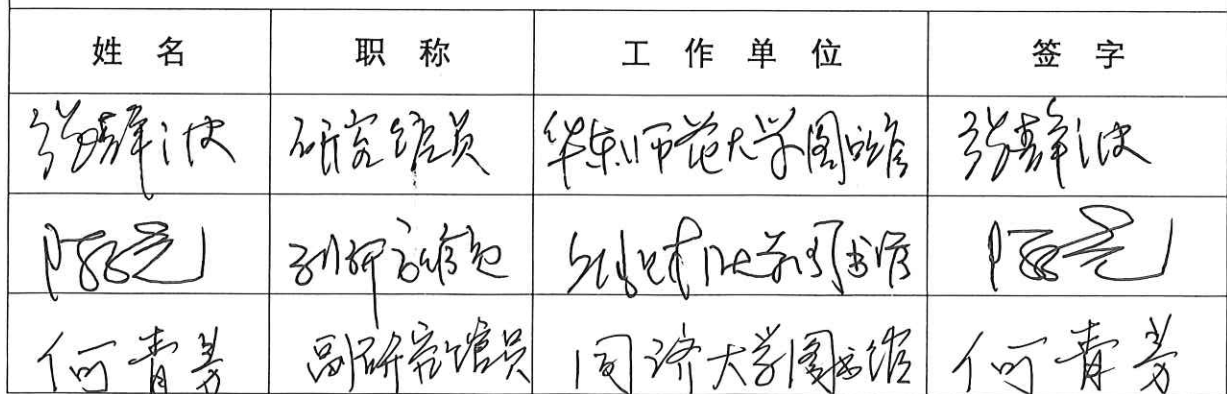 姓名 职称 工作单位 签字
张静波 研究馆员 华东师范大学图书馆 张静波
副研究馆员 大学图书馆
何青芳 副研究馆员 同济大学图书馆 何青芳